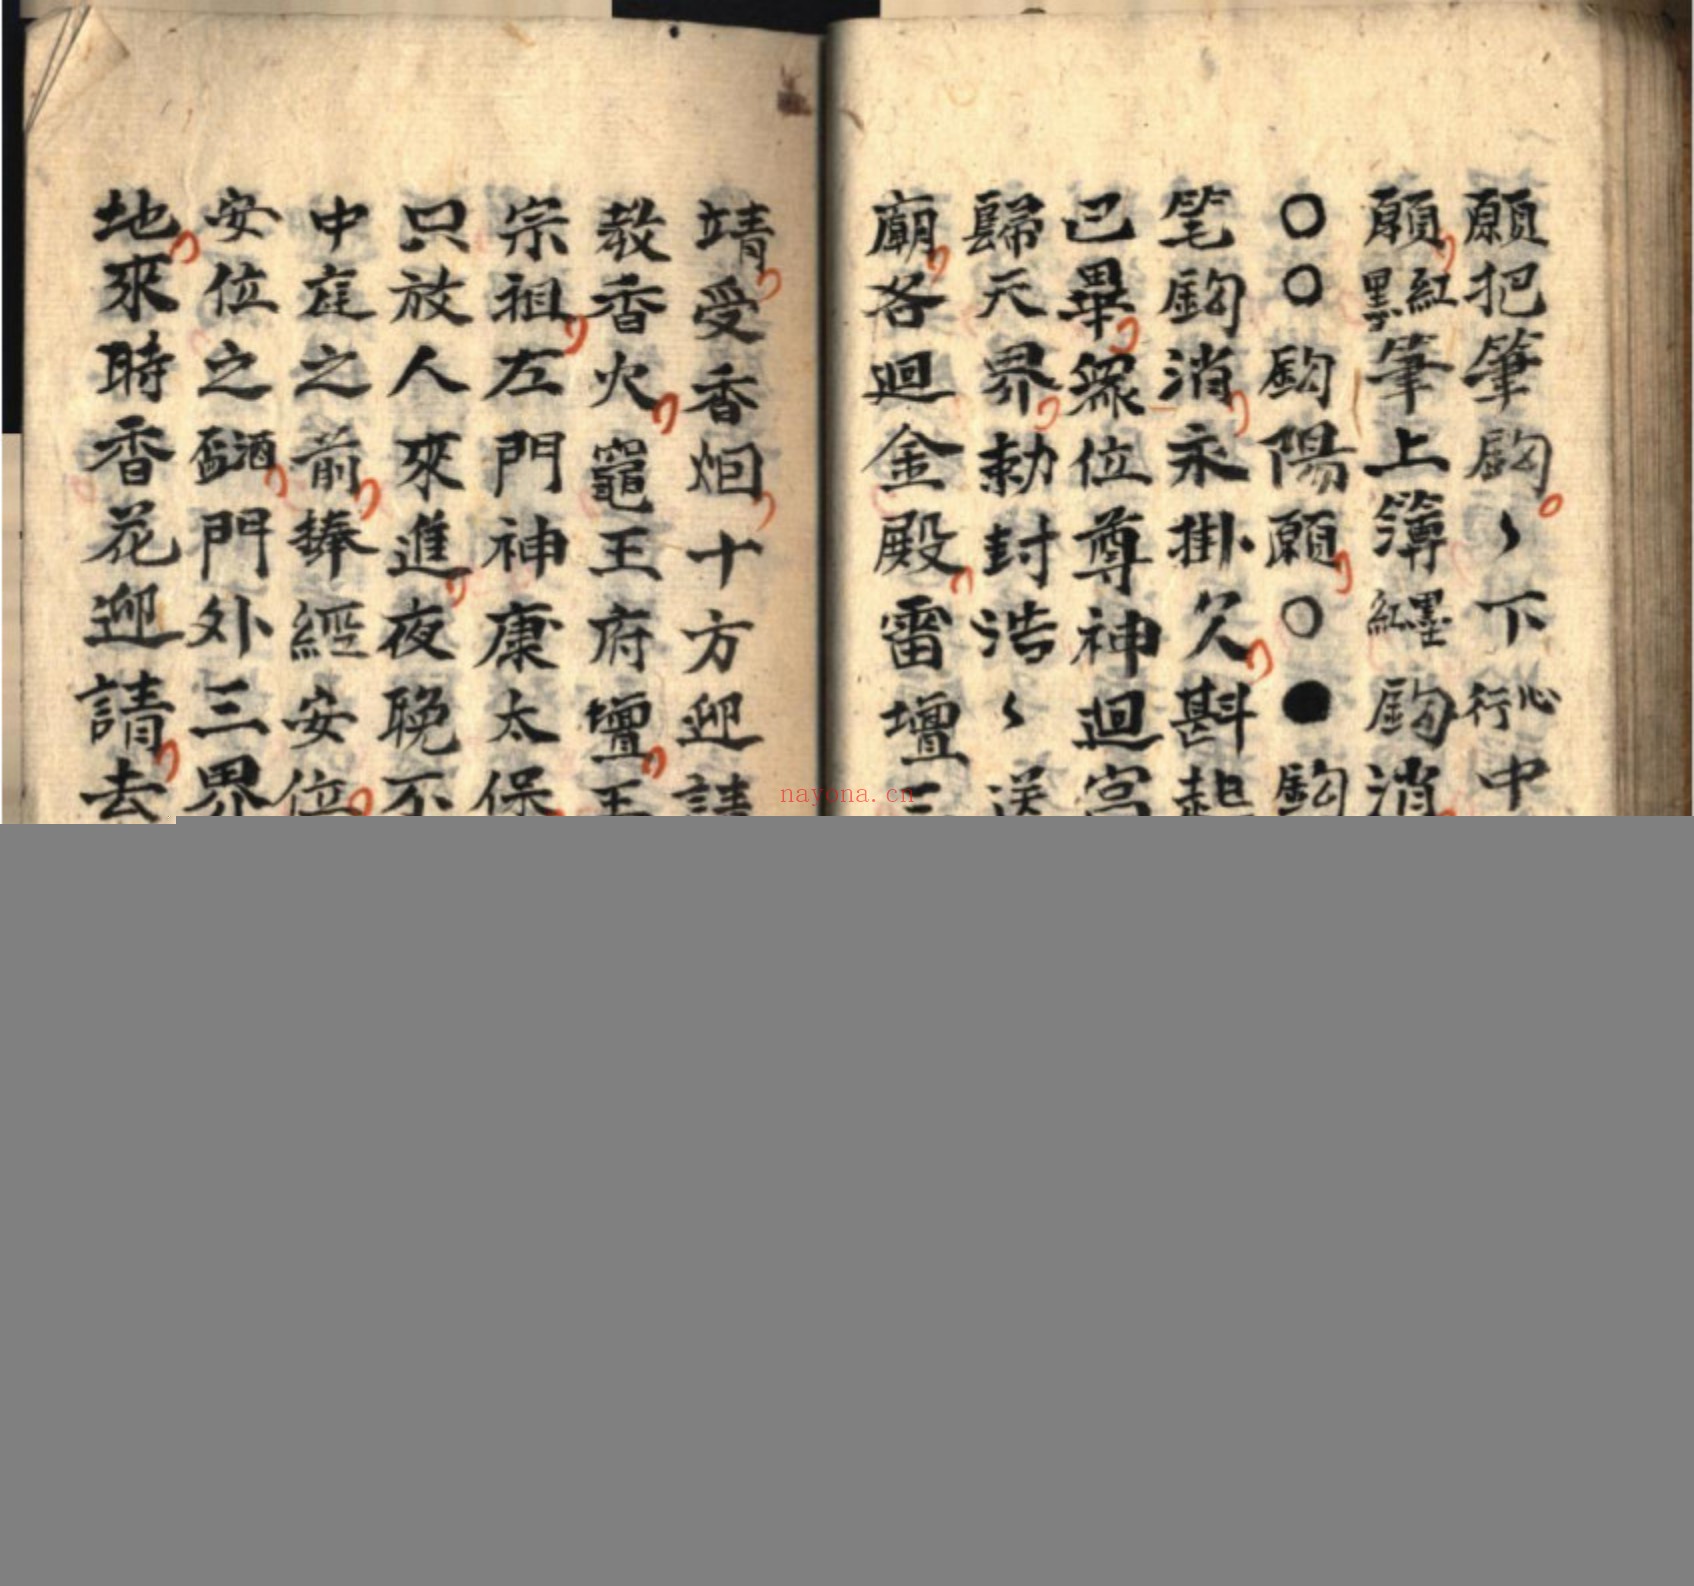 願把筆鈎〻下心行中
願紅黑筆上簿墨紅鈎消
〇〇鈎陽願〇●鈎
笔鈎消永掛久斟起
已畢衆位尊神迴宮
歸天界勅封浩〻送
廟各迴金殿雷壇三
靖受香烟十方迎請
教香火竈王府壇王
宗祖左門神康太保
只放人來進夜晚不
中庭之前捧經安位
安位之酒盞門外三界
地來時香花迎請去
nayona.cn